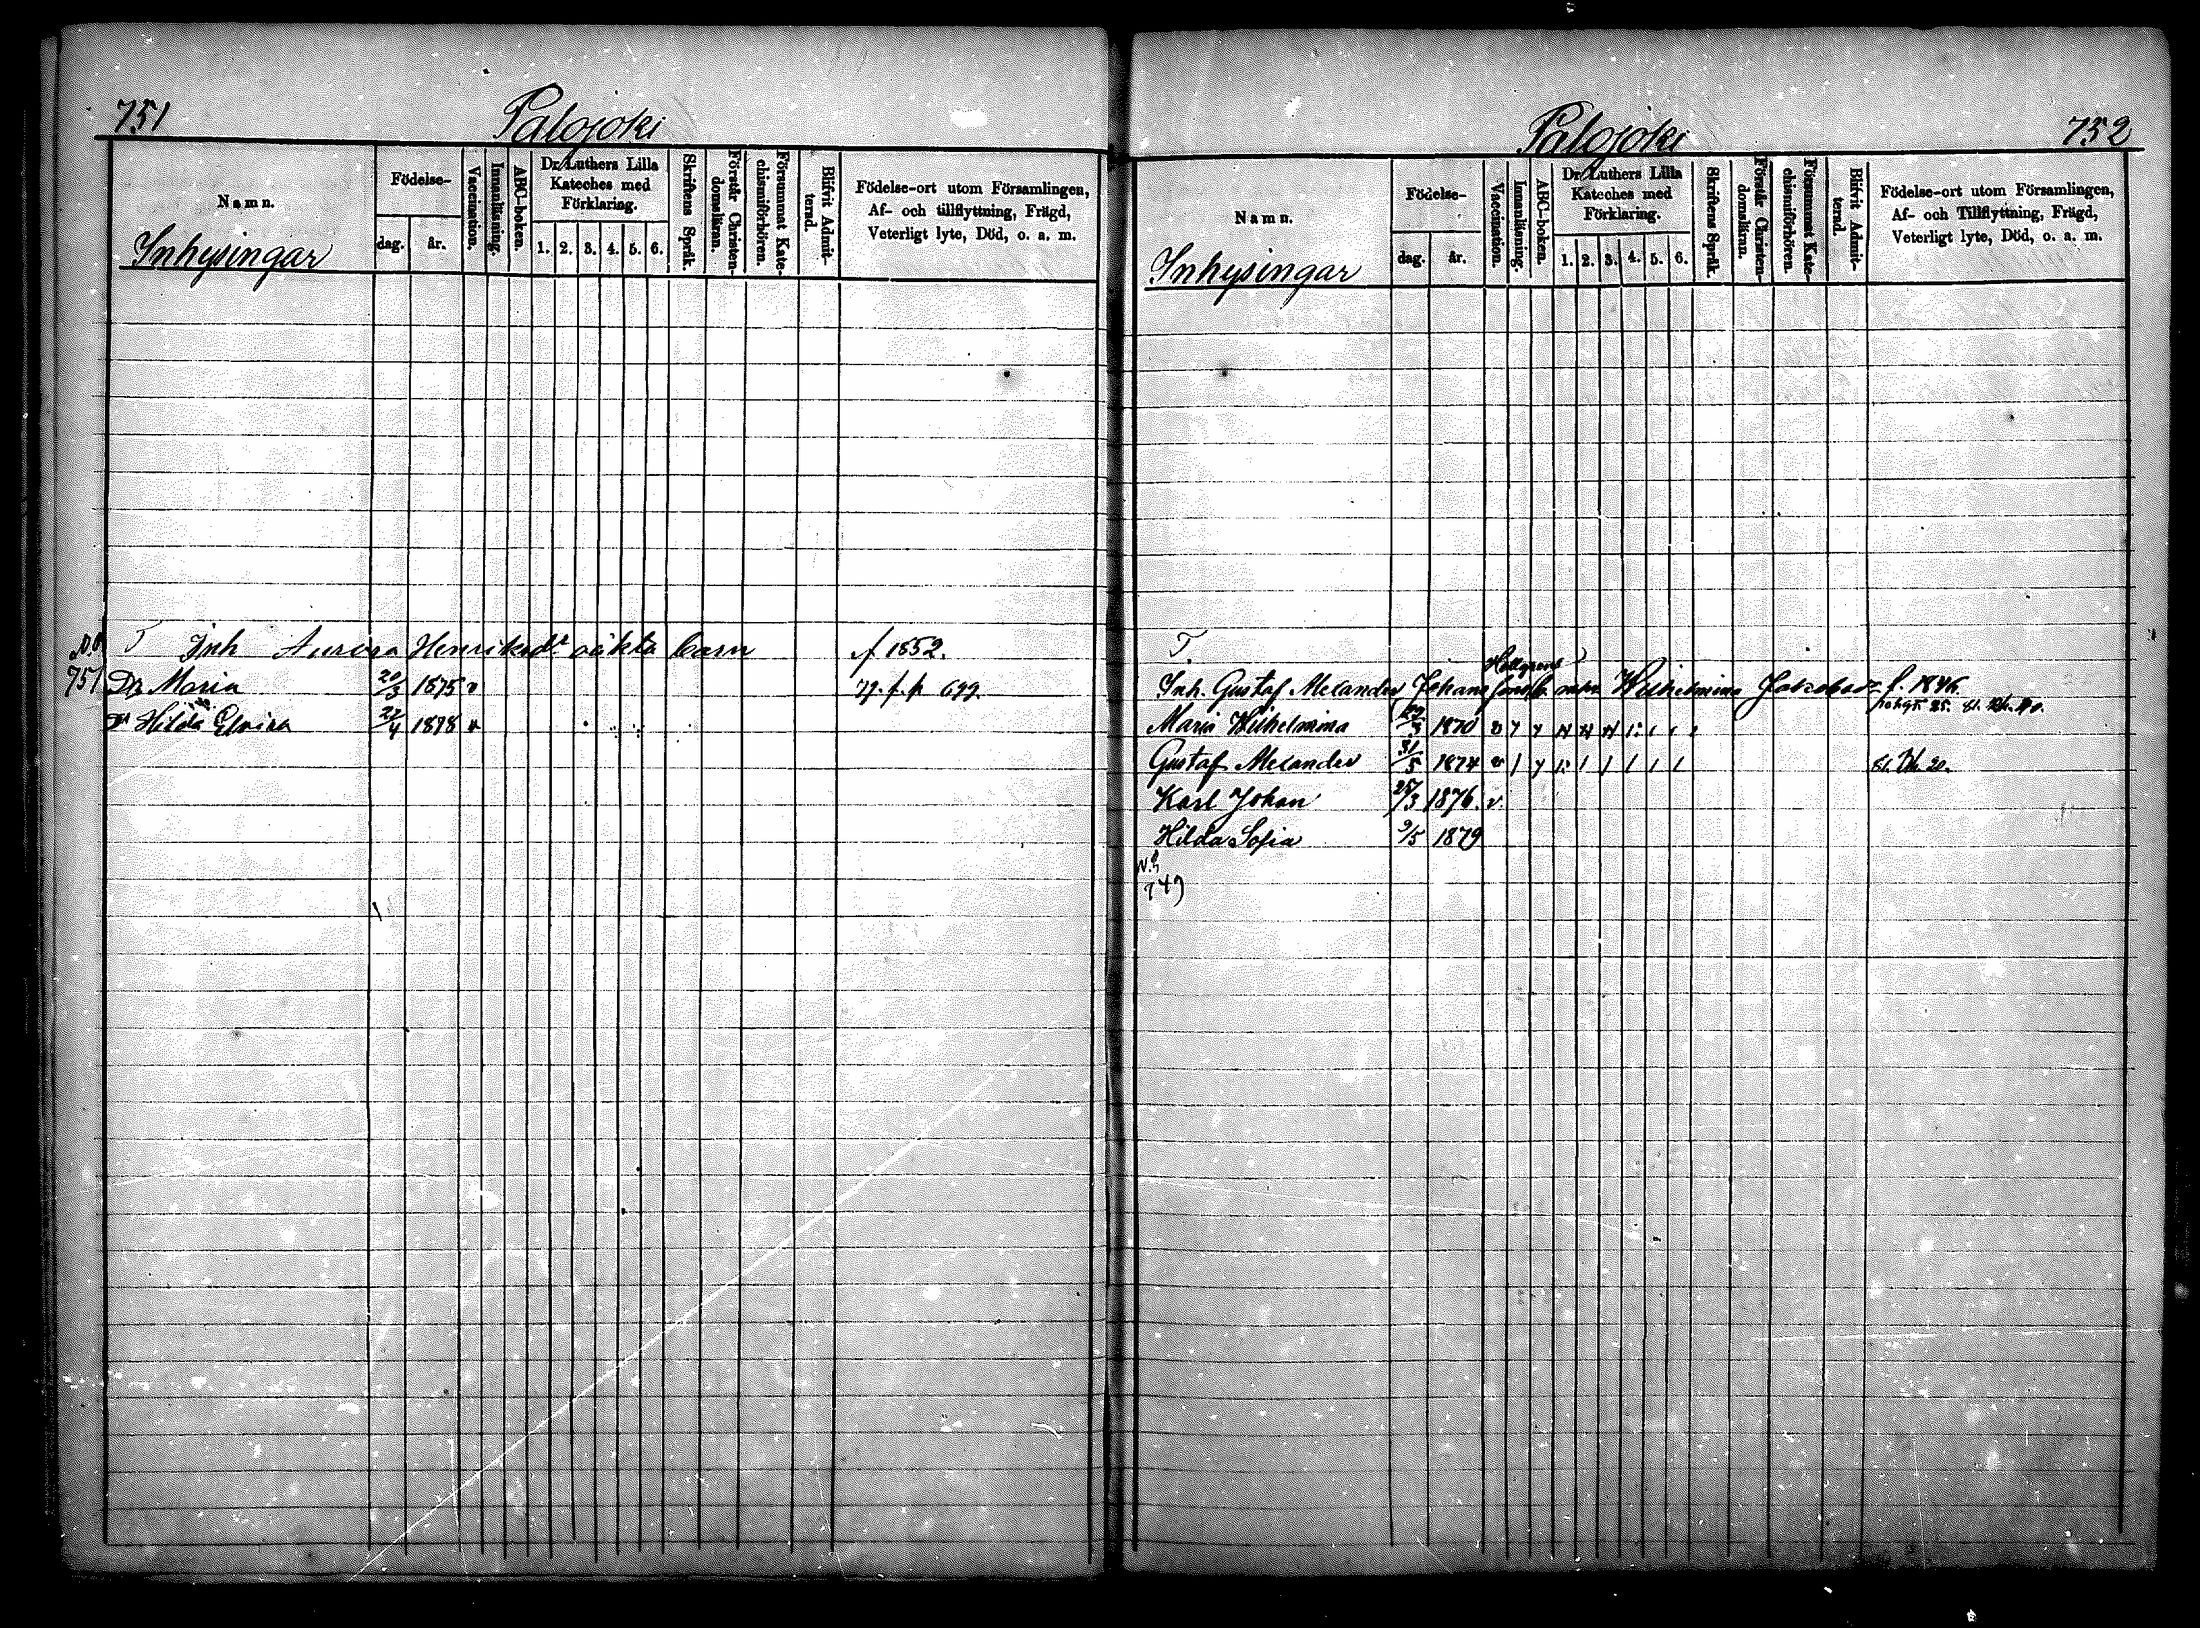 751
Palojoki
Namn.
Inhysingar
Födelse-
dag.
år.
Vaccination.
Innanläsning.
ABC-boken.
Dr. Luthers Lilla
Kateches med
Förklaring.
1. 2. 3. 4. 5. 6.
Skriftens Språk.
Förstår Christen-
domsläran.
Försummat Kate-
chismiförhören.
Blifvit Admit-
terad.
Födelse-ort utom Församlingen,
Af- och tillflyttning, Frägd,
Veterligt lyte, Död, o. a. m.
T Inh Aurora Henriksdr oäkta barn f 1852.
751 Dr Maria 20/3 1875 v 79. f. p. 699.
Dr Hilda Elvira 22/4 1878 v
Palojoki
752
Namn.
Inhysingar
Födelse-
dag.
år.
Vaccination.
Innanläsning.
ABC-boken.
Dr. Luthers Lilla
Kateches med
Förklaring.
1. 2. 3. 4. 5. 6.
Skriftens Språk.
Förstår Christen-
domsläran.
Försummat Kate-
chismiförhören.
Blifvit Admit-
terad.
Födelse-ort utom Församlingen,
Af- och Tillflyttning, Frägd,
Veterligt lyte, Död, o. a. m.
T
Inh. Gustaf Alexander Johans Wilhelmina f. 1846.
Maria Wilhelmina 1870 v
Gustaf Alexander 31/5 1874 v
Karl Johan 25/3 1876. v.
Hilda Sofia 9/5 1879
749